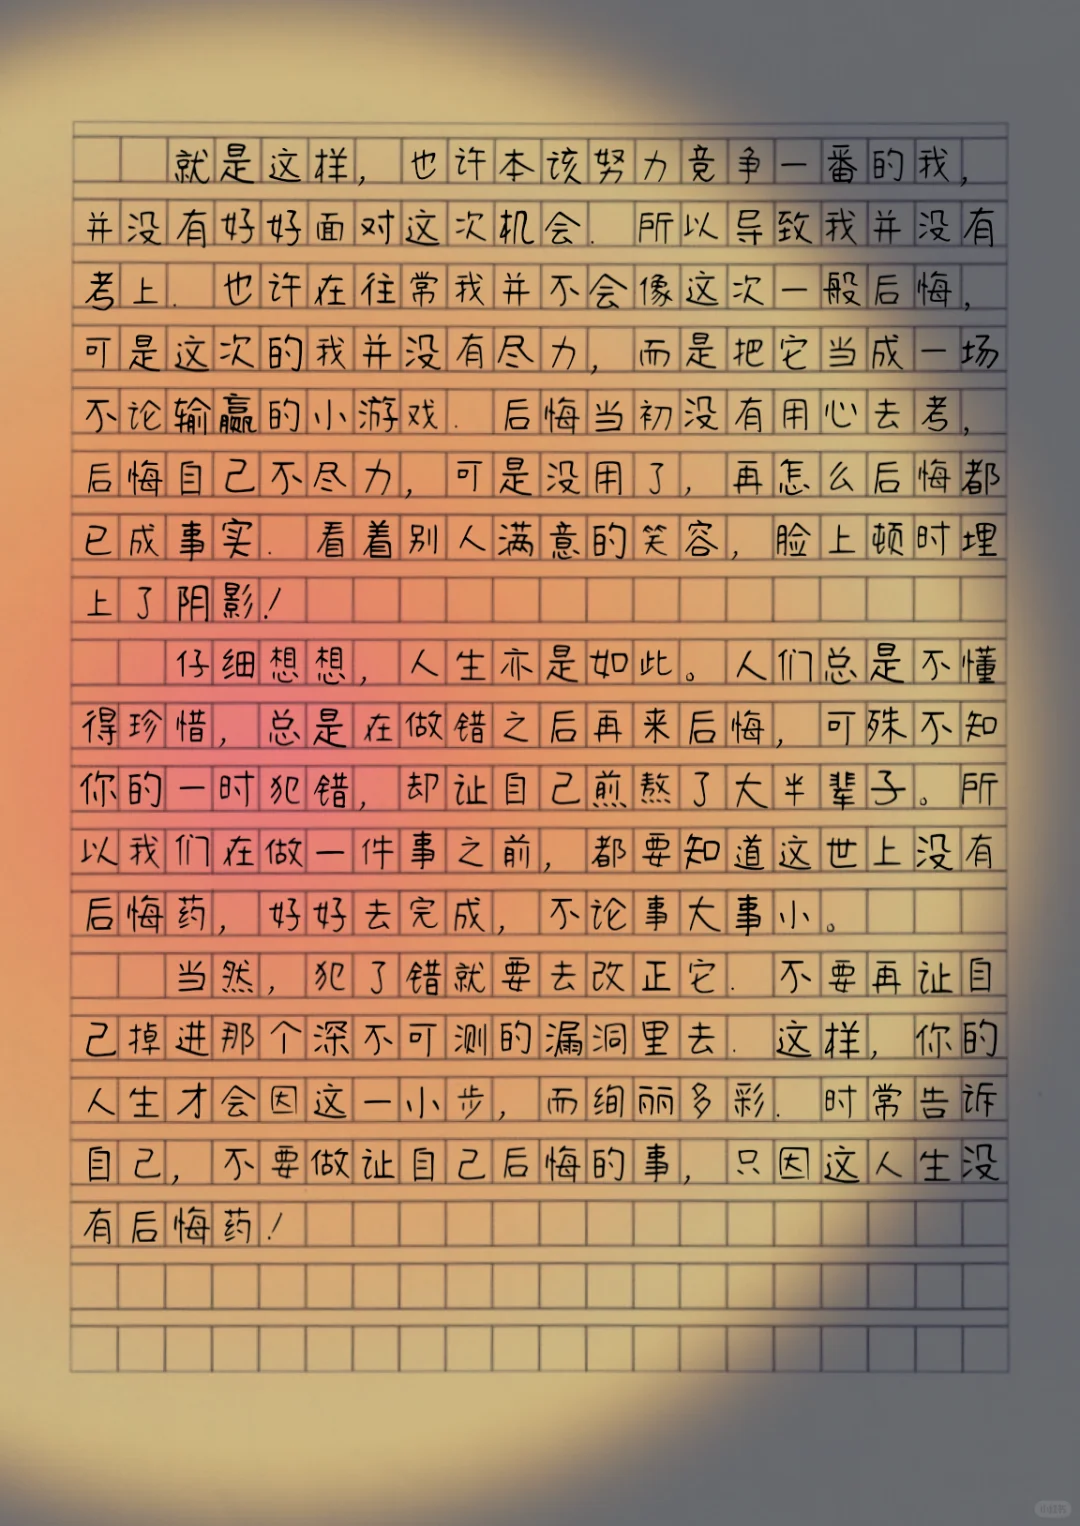 就是这样，也许本该努力竞争一番的我，
并没有好好面对这次机会．所以导致我并没有
考上．也许在往常我并不会像这次一般后悔，
可是这次的我并没有尽力，而是把它当成一场
不论输赢的小游戏．后悔当初没有用心去考，
后悔自己不尽力，可是没用了，再怎么后悔都
已成事实．看着别人满意的笑容，脸上顿时埋
上了阴影！
仔细想想，人生亦是如此。人们总是不懂
得珍惜，总是在做错之后再来后悔，可殊不知
你的一时犯错，却让自己煎熬了大半辈子。所
以我们在做一件事之前，都要知道这世上没有
后悔药，好好去完成，不论事大事小。
当然，犯了错就要去改正它．不要再让自
己掉进那个深不可测的漏洞里去．这样，你的
人生才会因这一小步，而绚丽多彩．时常告诉
自己，不要做让自己后悔的事，只因这人生没
有后悔药！
小红书